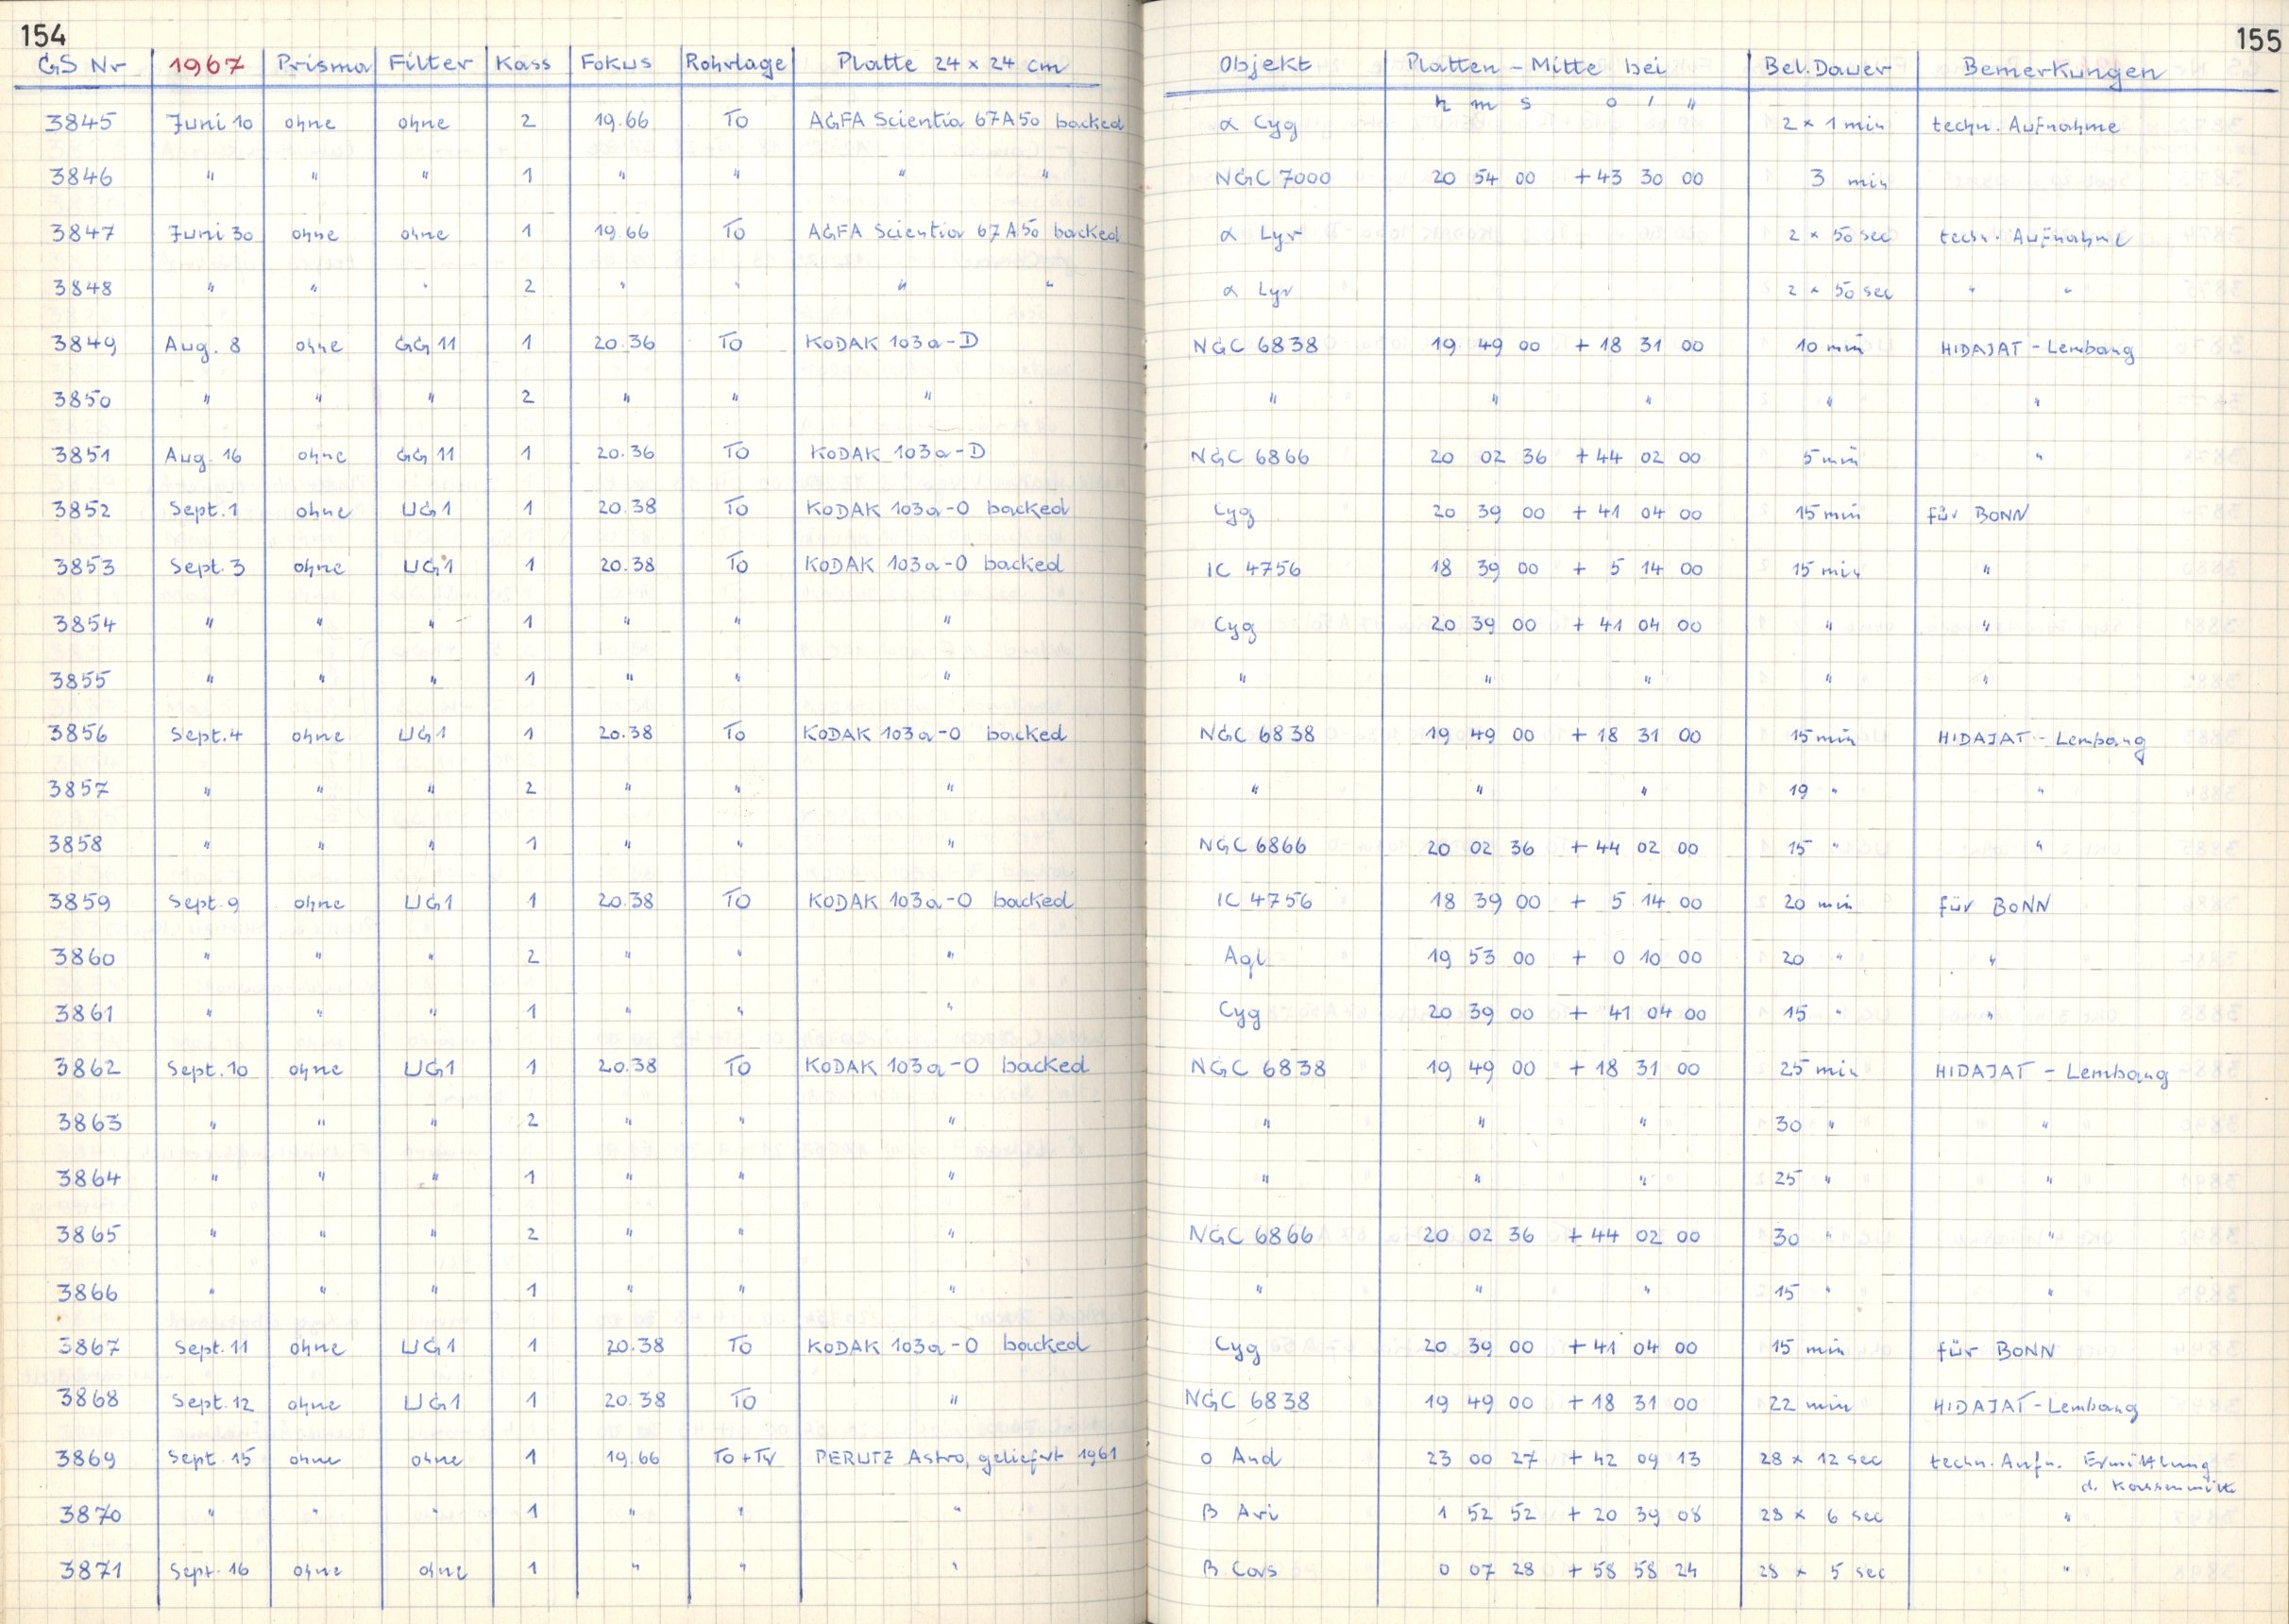 154
155
GS Nr 1967 Prisma Filter Kass Fokus Rohrlage Platte 24 x 24 cm Objekt Platten - Mitte bei Bel. Dauer Bemerkungen
h m s o ' "
3845 Juni 10 ohne ohne 2 19.66 To AGFA Scientia 67A50 backed α Cyg 2 x 1 min techn. Aufnahme
3846 " " " 1 " " " " NGC 7000 20 54 00 +43 30 00 3 min
3847 Juni 30 ohne ohne 1 19.66 To AGFA Scientia 67A50 backed α Lyr 2 x 50 sec techn. Aufnahme
3848 " " " 2 " " " " α Lyr 2 x 50 sec " "
3849 Aug. 8 ohne GG 11 1 20.36 To KODAK 103a-D NGC 6838 19 49 00 +18 31 00 10 min HIDAJAT - Lembang
3850 " " " 2 " " " " " " " "
3851 Aug. 16 ohne GG 11 1 20.36 To KODAK 103a-D NGC 6866 20 02 36 +44 02 00 5 min "
3852 Sept. 1 ohne UG1 1 20.38 To KODAK 103a-O backed Cyg 20 39 00 +41 04 00 15 min für BONN
3853 Sept. 3 ohne UG1 1 20.38 To KODAK 103a-O backed IC 4756 18 39 00 + 5 14 00 15 min "
3854 " " " 1 " " " Cyg 20 39 00 +41 04 00 " "
3855 " " " 1 " " " " " " " "
3856 Sept. 4 ohne UG1 1 20.38 To KODAK 103a-O backed NGC 6838 19 49 00 +18 31 00 15 min HIDAJAT - Lembang
3857 " " " 2 " " " " " " 19 " "
3858 " " " 1 " " " NGC 6866 20 02 36 +44 02 00 15 " "
3859 Sept. 9 ohne UG1 1 20.38 To KODAK 103a-O backed IC 4756 18 39 00 + 5 14 00 20 min für BONN
3860 " " " 2 " " " Aql 19 53 00 + 0 10 00 20 " "
3861 " " " 1 " " " Cyg 20 39 00 + 41 04 00 15 " "
3862 Sept. 10 ohne UG1 1 20.38 To KODAK 103a-O backed NGC 6838 19 49 00 +18 31 00 25 min HIDAJAT - Lembang
3863 " " " 2 " " " " " " 30 " "
3864 " " " 1 " " " " " " 25 " "
3865 " " " 2 " " " NGC 6866 20 02 36 +44 02 00 30 " "
3866 " " " 1 " " " " " " 15 " "
3867 Sept. 11 ohne UG1 1 20.38 To KODAK 103a-O backed Cyg 20 39 00 +41 04 00 15 min für BONN
3868 Sept. 12 ohne UG1 1 20.38 To " NGC 6838 19 49 00 +18 31 00 22 min HIDAJAT - Lembang
3869 Sept. 15 ohne ohne 1 19.66 To + Tw PERUTZ Astro, geliefert 1961 o And 23 00 27 +42 09 13 28 x 12 sec techn. Aufn. Ermittlung
d. Kassenmitte
3870 " " " 1 " " " β Ari 1 52 52 + 20 39 08 28 x 6 sec "
3871 Sept. 16 ohne ohne 1 " " " β Cas 0 07 28 +58 58 24 28 x 5 sec "